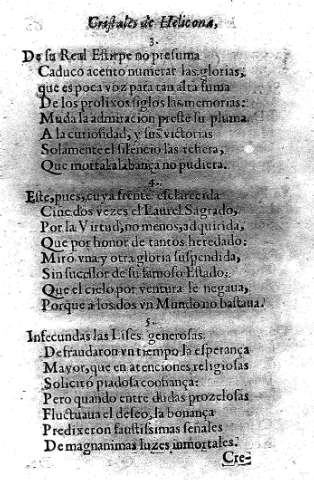 Cristales de Helicona,
3.
De su Real Estirpe no presuma
Caduco acento numerar las glorias,
que es poca voz para tan alta suma
De los prolixos siglos las memorias:
Muda la admiracion preste su pluma
A la curiosidad, y sus victorias
Solamente el silencio las refiera,
Que mortal alabança no pudiera.
4.
Este, pues, cuya frente esclarecida
Ciñe dos vezes el Laurel Sagrado,
Por la Virtud, no menos, adquirida,
Que por honor de tantos heredado:
Miro vna y otra gloria suspendida,
Sin sucessor de su famoso Estado:
Que el cielo por ventura le negaua,
Porque a los dos vn Mundo no bastaua.
5.
Infecundas las Lises generosas
Defraudaron vn tiempo la esperança
Mayor, que en atenciones religiosas
Solicitò piadosa confiança:
Pero quando entre dudas procelosas
Fluctuaua el deseo, la bonança
Predixeron faustissimas señales
De magnanimas luzes inmortales.
Cre-